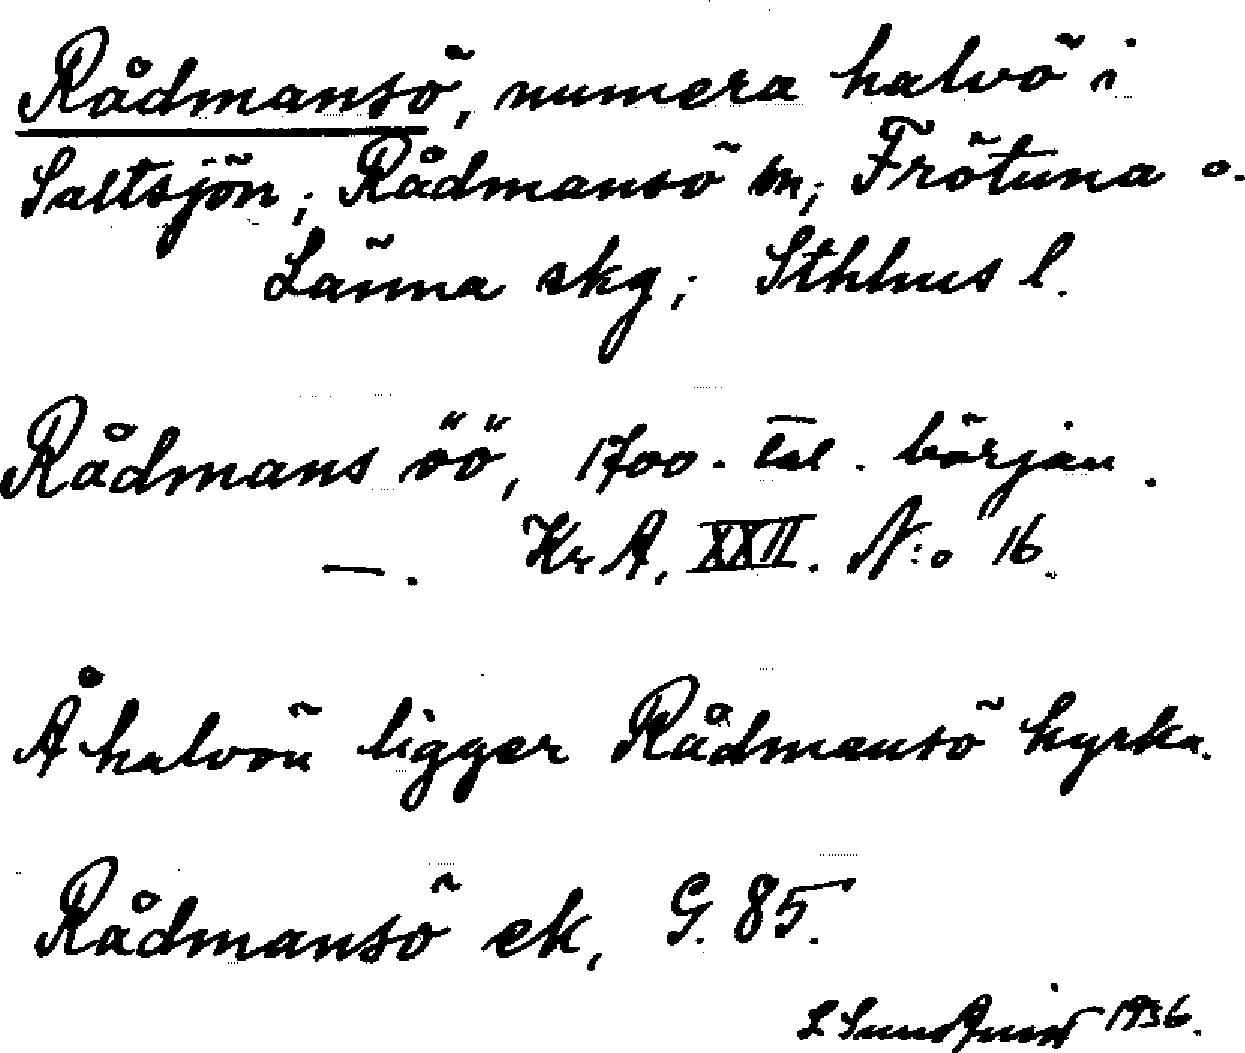 Rådmansö, numera halvö i
Saltsjön; Rådmansö sn; Frötuna o.
Länna skg; Sthlms l.
Rådmans öö, 1700-tal. början.
—. Kr A, XXII. N:o 16.
Å halvön ligger Rådmansö kyrka.
Rådmansö ek, G. 85.
1936.